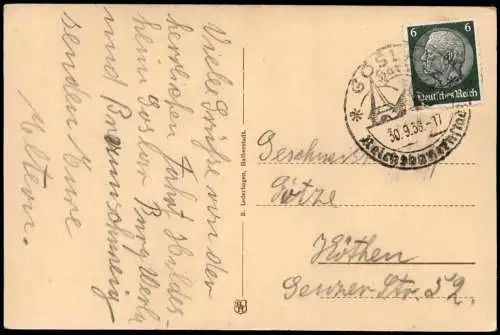 Viele Grüße von der
herrlichen Fahrt Hildes-
heim Goslar Burg Werla
und Braunschweig
senden Eure
Eltern.
R. Lederbogen, Halberstadt.
6
Deutsches Reich
GOSLAR
30.9.38.-17
Reichsbauernstadt
Geschwister
Götze
Köthen
Geuzer Str. 52.